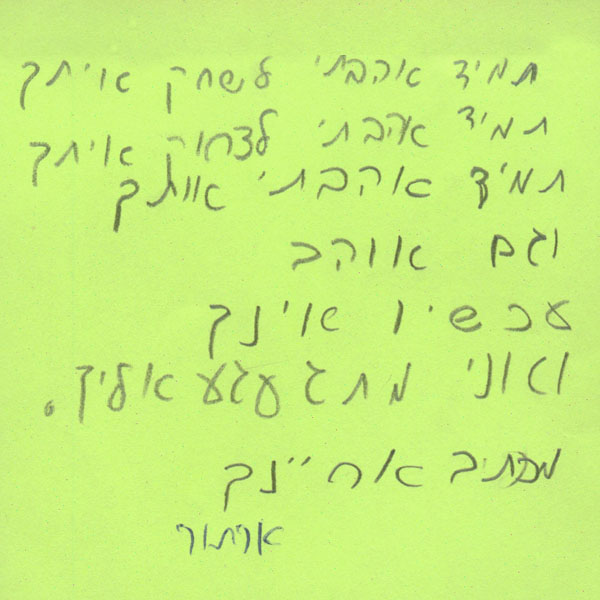 תמיד אהבתי לשחק איתך
תמיד אהבתי לצחוק איתך
תמיד אהבתי אותך
וגם אוהב
עכשיו אינך
ואני מתגעגע אליך.
אחיינך
ארתור